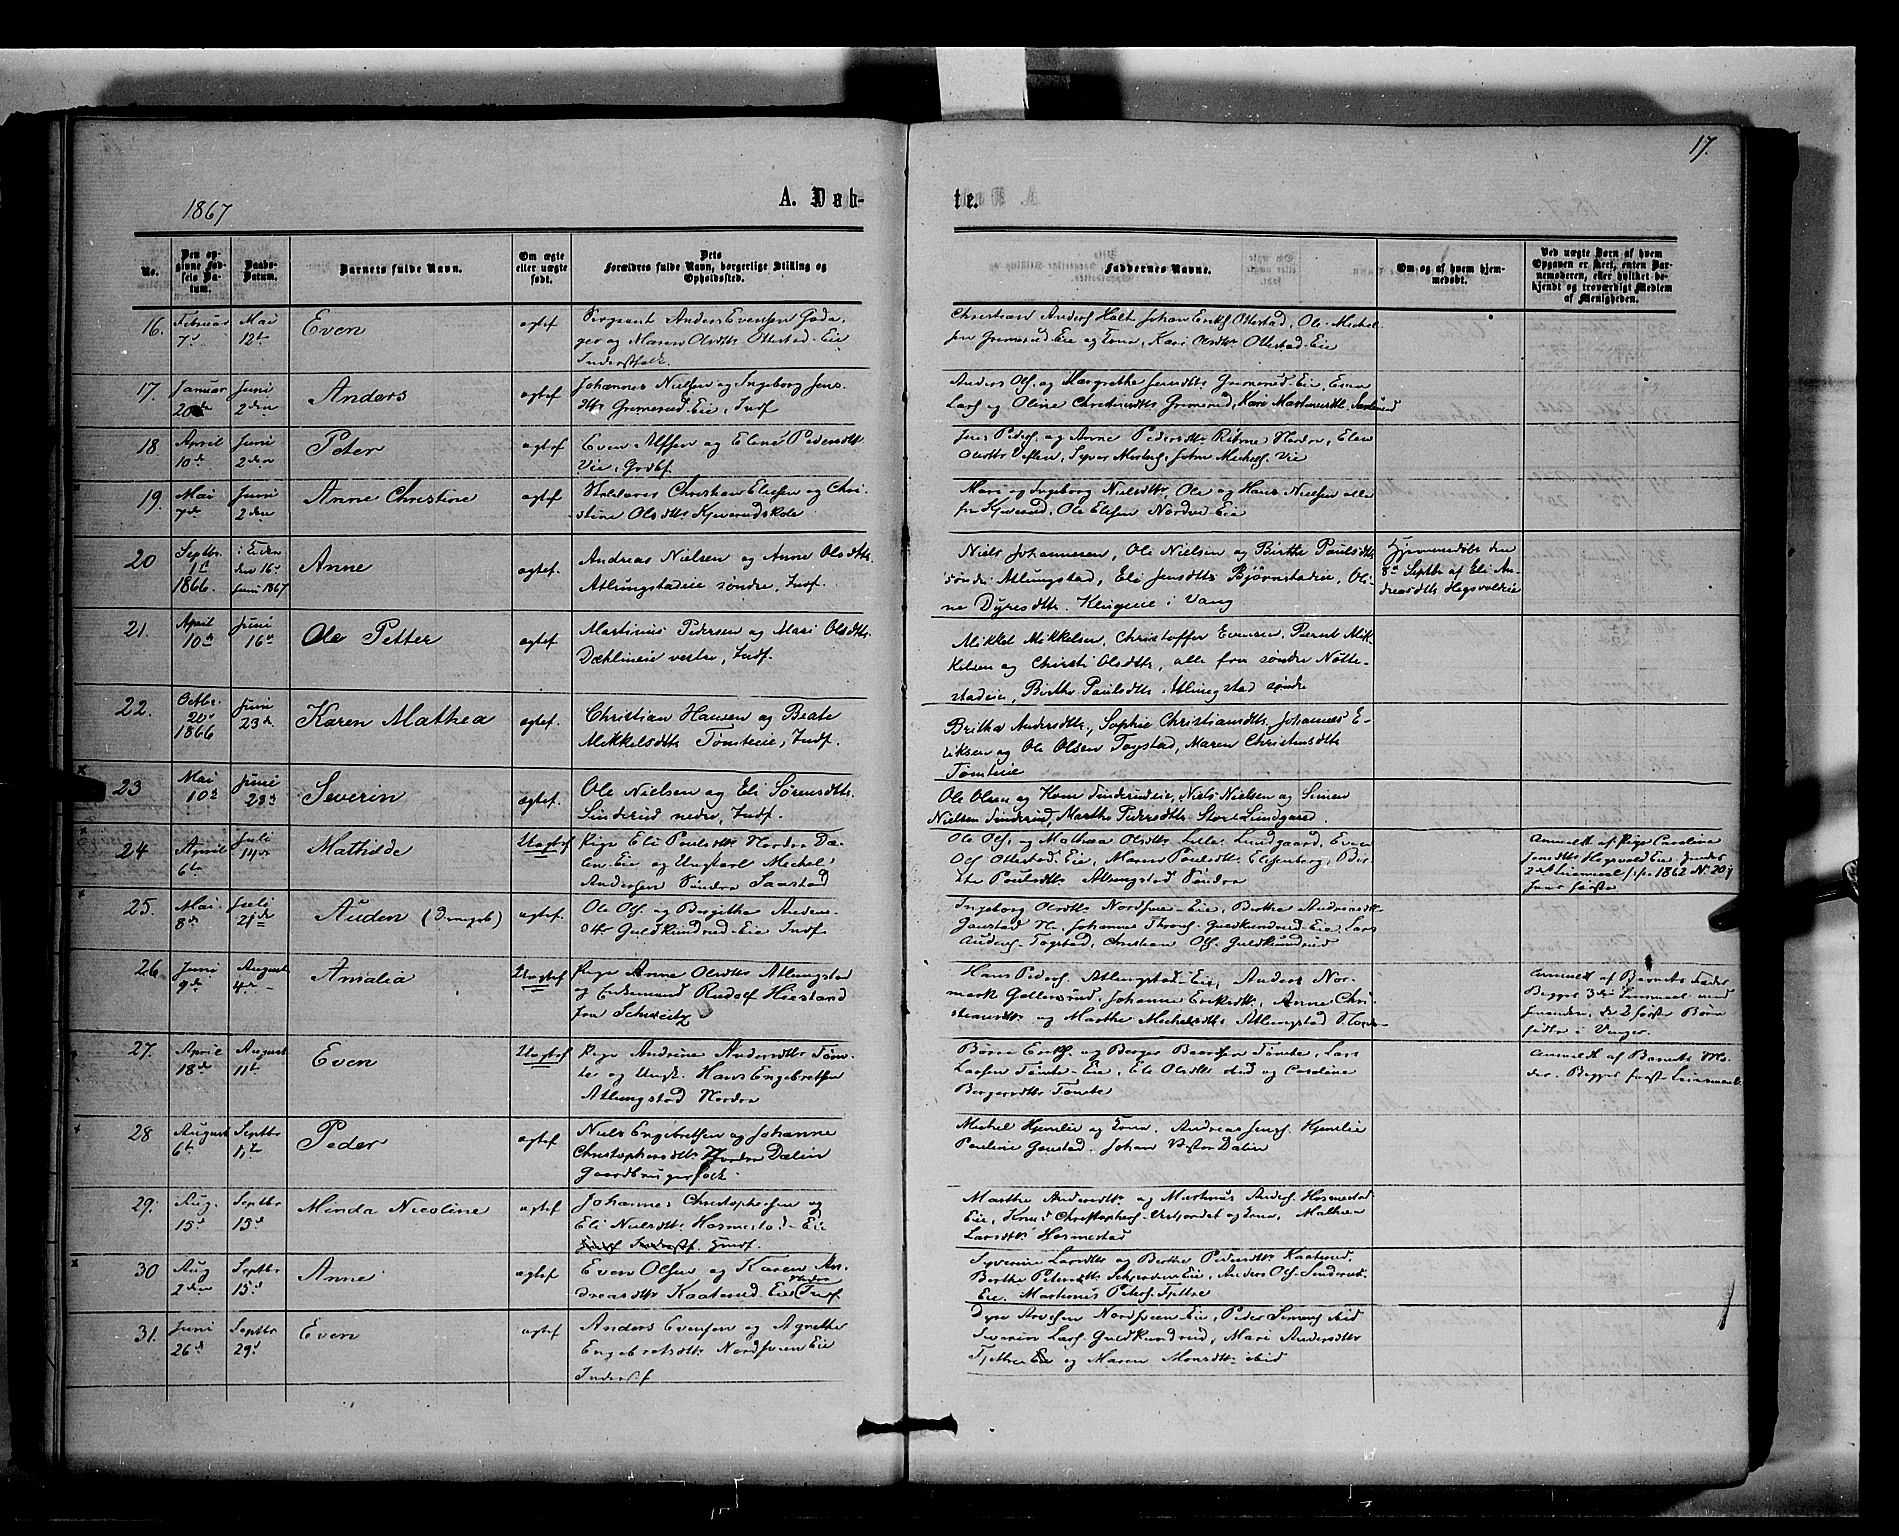 17.
1867
A. Døb-
te.
No.
Den op-
givne Fød-
sels Da-
tum.
Daabs-
Datum.
Barnets fulde Navn.
Om ægte
eller uægte
født.
Dets
Forældres fulde Navn, borgerlige Stilling og
Opholdssted.
Faddernes Navne.
Om og af hvem hjem-
medøbt.
Ved uægte Børn af hvem
Opgaven er skeet, enten Bar-
nemoderen, eller hvilket be-
kjendt og troværdigt Medlem
af Menigheden.
16.
Februar
7d
Mai
12te
Even
ægtef
Sergeant Anders Evensen
og Maren Olsdtr Ottestad-Eie
Inderstfolk
Christian Anders Holt Johan Eriks Ottestad, Ole Michel
sen Gremerud Eie og Kone, Kari Olsdtr Ottestad-Eie
17.
Januar
20de
Juni
2den
Anders
ægtef
Johannes Nielsen og Ingeborg Jens
dtr Gremerud Eie, Indf
Anders Ols. og Margrethe Jensdtr Gremerud-Eie, Even
Lars og Oline Christiansdtr Gremerud, Kari Martinusdtr
18
April
10de
Juni
2den
Peter
ægtef
Even Alfsen og Eline Pedersdtr
Vie, Grdbf
Jens Peders. og Anne Pedersdtr Nordre, Elen
Olsdtr Johan Michels. Vie
19.
Mai
7de
Juni
2den
Anne Christine
ægtef
Skolelærer Christian Eliesen og Chri-
stine Olsdtr Kjeverudskole
Mari og Ingeborg Nielsdtr, Ole og Hans Nielsen alle
fra Kjeverud, Ole Eliesen Eie
20
Septbr.
1ste
1866.
i
den 16de
Juni 1867
Anne
ægtef.
Andreas Nielsen og Anne Olsdtr.
Atlungstadeie søndre, Indf.
Niels Johannesen, Ole Nielsen og Birthe Paulsdtr
søndre Atlungstad, Eli Jensdtr Bjørnstadeie, Oli-
ne Dyresdtr. i Vang
Hjemmedøbt den
8de Septbr af Eli An-
dreasdtr Hegsvoldeie
21.
April
10de
Juni
16de
Ole Petter
ægtef
Martinus Pedersen og Mari Olsdtr.
Dæhlineie vestre, Indf.
Mikkel Mikkelsen, Christoffer Evensen, Mik-
kelsen og Christi Olsdtr, alle fra søndre Nøtte-
stadeie, Birthe Paulsdtr Atlungstad søndre
22.
Octbr.
20de
1866
Juni
23de
Karen Mathea
ægtef.
Christian Hansen og Beate
Mikkelsdtr Tømteeie, Indf.
Britha Andersdtr, Sophie Christiansdtr, Johannes E-
riksen og Ole Olsen Togstad, Maren Christensdtr
Tømteeie
23
Mai
10de
Juni
23de
Severin
ægtef.
Ole Nielsen og Eli Sørensdtr.
Sinderud nedre, Indf.
Ole Olsen og Kone Sinderudeie, Niels Nielsen og Simen
Nielsen Sinderud, Marthe Pedersdtr Store Lundgaard.
24
April
6te
Juli
14de
Mathilde
Uægtef
Pige Eli Paulsdtr Nordre Dæ-
len-Eie og Ungkarl Michel
Andersen Søndre Saastad
Ole Ols. og Mathea Olsdtr Lille Lundgaard, Even
Ols Ottestad-Eie, Maren Paulsdtr Elisenberg, Bir-
the Paulsdtr Atlungstad Søndre
Anmeldt af Pige Caroline
Jensdtr Hegsvold Eie
2det Leiermaal 1862 No 20
første
25.
Mai
8de
Juli
21de
Auden
ægtef.
Ole Ols. og Birgithe Anders
dtr Guldkundrud-Eie Indf
Ingeborg Olsdtr Nordsveen-Eie, Berthe Andreasdtr
Gaustad N., Johannes Guldkundrud-Eie, Lars
Anders. Togstad, Christian Ols. Guldkundrud
26
Juni
9de
August
4de
Amalia
Uægtef
Pige Anne Olsdtr Atlungstad
og Enkemand Rudolf Hiestand
fra Schweitz
Hans Peders. Atlungstad-Eie, Anders Nor-
mark Gallesrud, Johanne Eriksdtr, Anne Chri-
stiansdtr og Marthe Michelsdtr Atlungstad Nordre
Anmeldt af Barnets Fader
Begges 3die Leiermaal med
hinanden, de 2 første Børn
fødte i Vanger.
27.
April
18de
August
11te
Even
Uægtef
Pige Andrine Andersdtr Tøm-
te og Ungk. Hans Engebretsen
Atlungstad Nordre
Børre Eriks. og Berger Tømte, Lars
Larsen Tømte-Eie, Eli Olsdtr ibid og Caroline
Bergersdtr Tømte
Anmeldt af Barnets Mo-
der. Begges første Leiermaal
28
August
6te
Septbr
1ste
Peder
ægtef
Niels Engebretsen og Johanne
Christophersdtr Nordre Dælin
Gaardbrugerfolk
Michel Hjemlie og Kone, Andreas Jens. Hjemlie
Pauline Gaustad, Johan Vestre Dalin
29.
Aug.
15de
Septbr
15de
Minda Nicoline
ægtef
Johannes Christophersen og
Eli Nielsdtr Hosmestad-Eie
Indf.
Marthe Andersdtr og Martinus Anders. Hosmestad
Eie, Knud Christophers. og Kone, Mathea
Larsdtr Hosmestad
30
Aug
2den
Septbr
15de
Anne
ægtef
Even Olsen og Karen An-
dreasdtr Kaaterud-Eie Nordre Indf
Syverine Larsdtr og Berthe Pedersdtr Kaaterud
Berthe Petersdtr Eie, Anders Ols. Sinderud
Eie, Martinus Peters. Tjettre
31.
Juni
26de
Septbr
29de
Even
ægtef
Anders Evensen og Agnethe
Engebretsdtr Nordsveen Eie
Inderstf
Dyre Arnesen Nordsveen-Eie, Peder Simens. ibid
Severin Lars. Guldkundrud, Mari Andersdtr
Tjettre Eie og Maren Monsdtr ibid